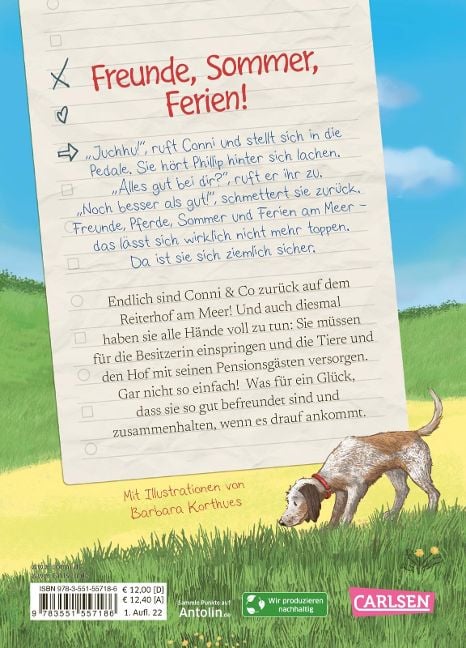 Freunde, Sommer,
Ferien!
„Juchhu!", ruft Conni und stellt sich in die
Pedale. Sie hört Phillip hinter sich lachen.
„Alles gut bei dir?", ruft er ihr zu.
„Noch besser als gut!", schmettert sie zurück.
Freunde, Pferde, Sommer und Ferien am Meer –
das lässt sich wirklich nicht mehr toppen.
Da ist sie sich ziemlich sicher.
Endlich sind Conni & Co zurück auf dem
Reiterhof am Meer! Und auch diesmal
haben sie alle Hände voll zu tun: Sie müssen
für die Besitzerin einspringen und die Tiere und
den Hof mit seinen Pensionsgästen versorgen.
Gar nicht so einfach! Was für ein Glück,
dass sie so gut befreundet sind und
zusammenhalten, wenn es drauf ankommt.
Mit Illustrationen von
Barbara Korthues
ISBN 978-3-551-55718-6
€ 12,00 [D]
€ 12,40 [A]
9 783551 557186
1. Aufl. 22
Sammle Punkte auf
Antolin.de
Wir produzieren
nachhaltig
CARLSEN